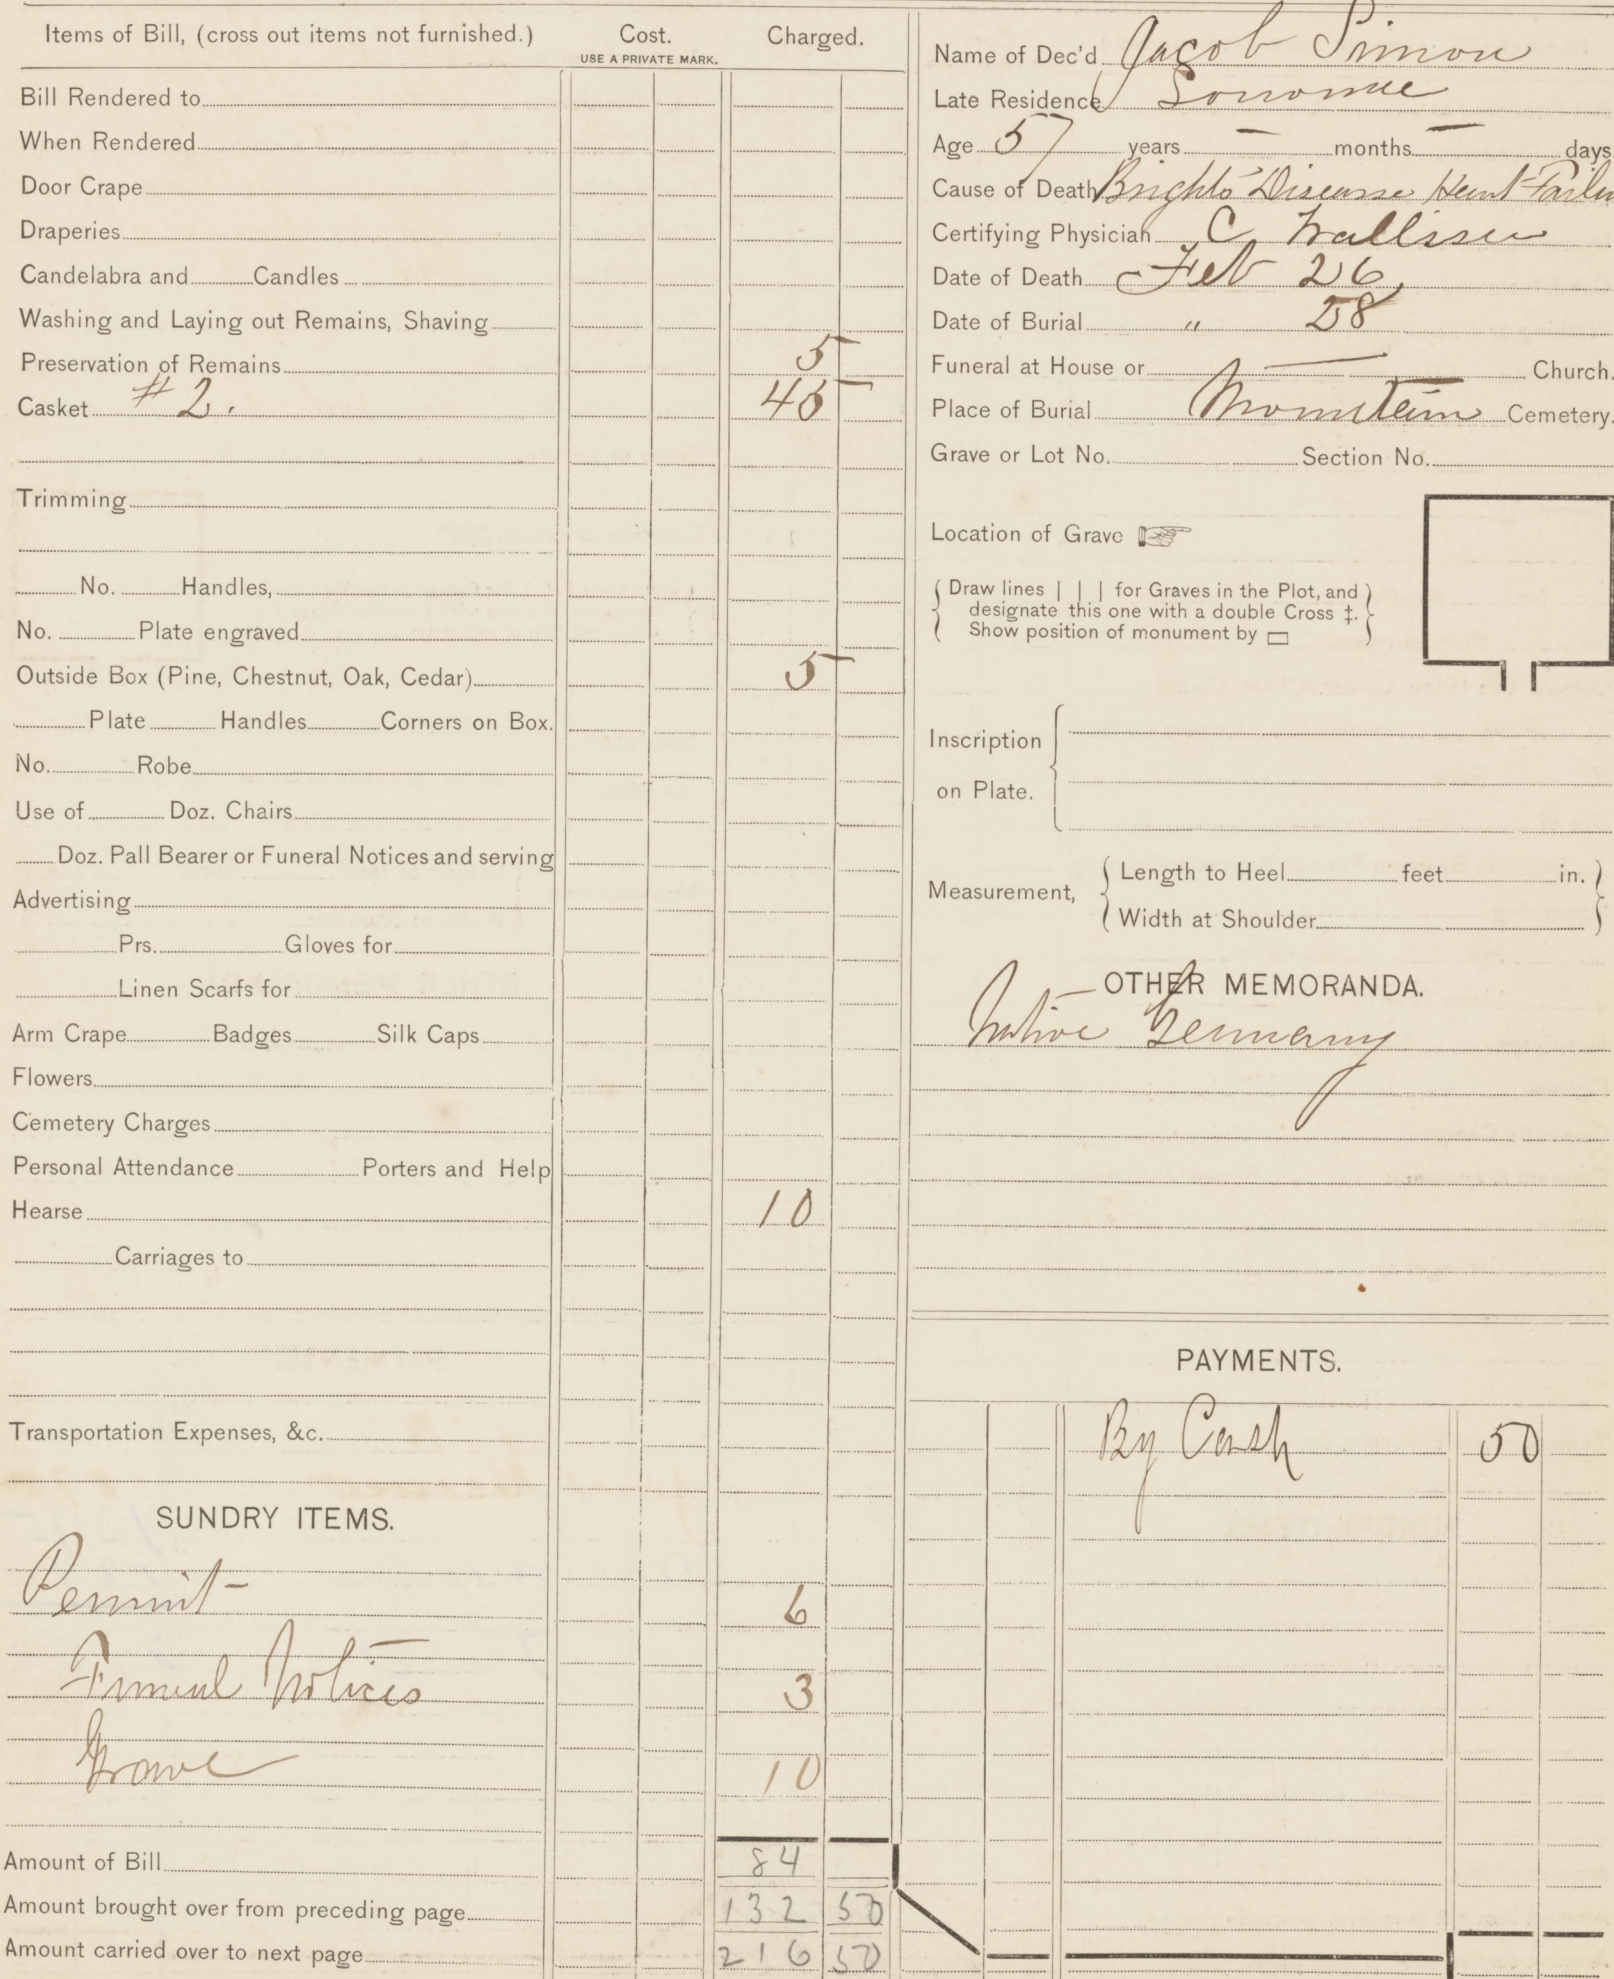 Items of Bill, (cross out items not furnished.) Cost. Charged.
USE A PRIVATE MARK.
Bill Rendered to
When Rendered
Door Crape
Draperies
Candelabra and Candles
Washing and Laying out Remains, Shaving
Preservation of Remains 5
Casket # 2. 45
Trimming
No. Handles,
No. Plate engraved
Outside Box (Pine, Chestnut, Oak, Cedar) 5
Plate Handles Corners on Box.
No. Robe
Use of Doz. Chairs
Doz. Pall Bearer or Funeral Notices and serving
Advertising
Prs. Gloves for
Linen Scarfs for
Arm Crape Badges Silk Caps
Flowers
Cemetery Charges
Personal Attendance Porters and Help
Hearse 10
Carriages to
Transportation Expenses, &c.
SUNDRY ITEMS.
Permit 6
Funeral Notices 3
Grave 10
Amount of Bill 84
Amount brought over from preceding page 132 50
Amount carried over to next page 216 50
Name of Dec'd Jacob Simon
Late Residence Sonoma
Age 57 years — months — days
Cause of Death Brights Disease Heart Failu
Certifying Physician C
Date of Death Feb 26,
Date of Burial " 28
Funeral at House or — Church.
Place of Burial Mountain Cemetery.
Grave or Lot No. Section No.
Location of Grave ☞
Draw lines | | | for Graves in the Plot, and
designate this one with a double Cross ‡.
Show position of monument by ▭
Inscription
on Plate.
Measurement, Length to Heel feet in.
Width at Shoulder
OTHER MEMORANDA.
Native Germany
PAYMENTS.
By Cash 50